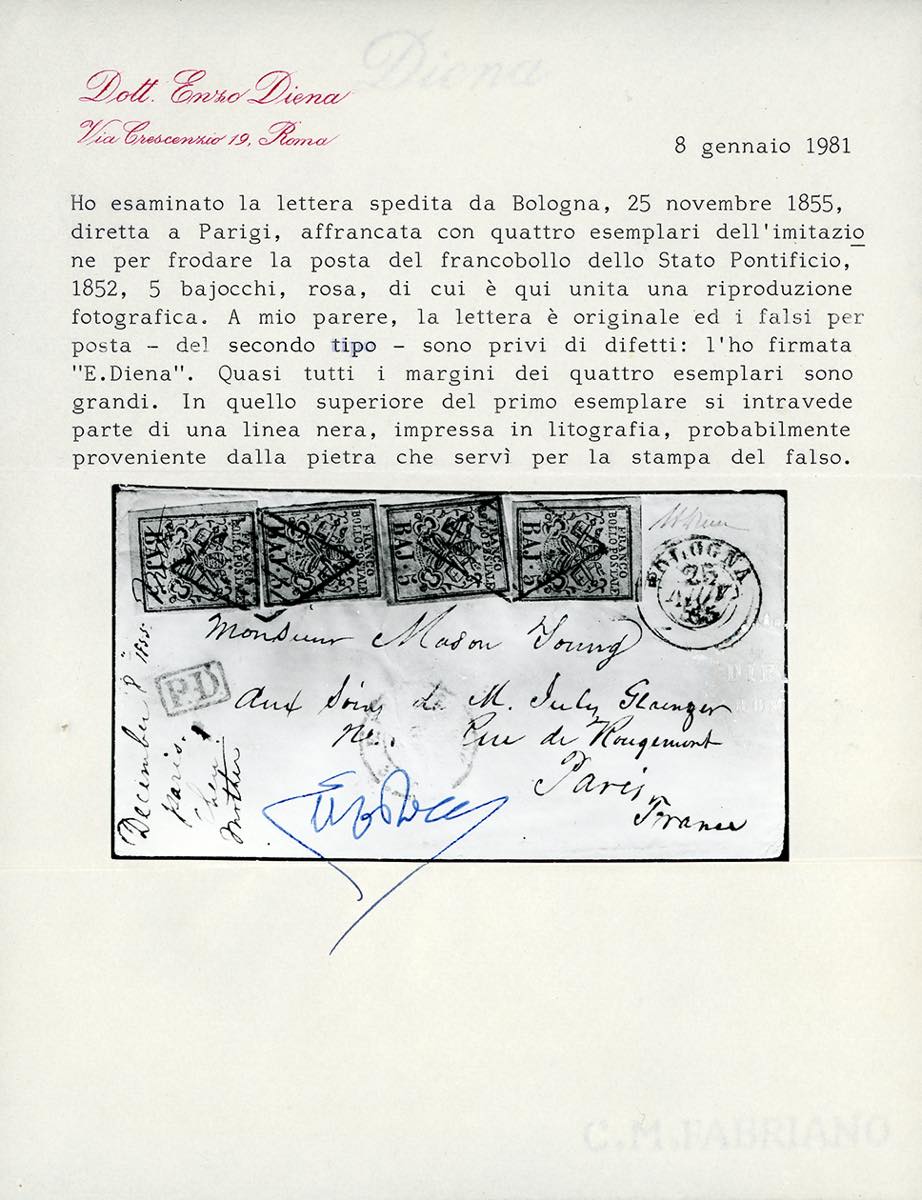 Diena
Dott. Enzo Diena
Via Crescenzio 19, Roma
8 gennaio 1981
Ho esaminato la lettera spedita da Bologna, 25 novembre 1855,
diretta a Parigi, affrancata con quattro esemplari dell'imitazio
ne per frodare la posta del francobollo dello Stato Pontificio,
1852, 5 bajocchi, rosa, di cui è qui unita una riproduzione
fotografica. A mio parere, la lettera è originale ed i falsi per
posta - del secondo tipo - sono privi di difetti: l'ho firmata
"E.Diena". Quasi tutti i margini dei quattro esemplari sono
grandi. In quello superiore del primo esemplare si intravede
parte di una linea nera, impressa in litografia, probabilmente
proveniente dalla pietra che servì per la stampa del falso.
FRANCO
BOLLO POSTALE
BAJ. 5
FRANCO
BOLLO POSTALE
BAJ. 5
BAJ. 5
FRANCO
BOLLO POSTALE
BAJ. 5
BOLOGNA
25
NOV
55
Monsieur Mason Young
P.D.
Aux Soins de M. July Glaenzer
Rue de Rougemont
Paris
France
December 8 1855.
Paris.
Mother
C.M.FABRIANO